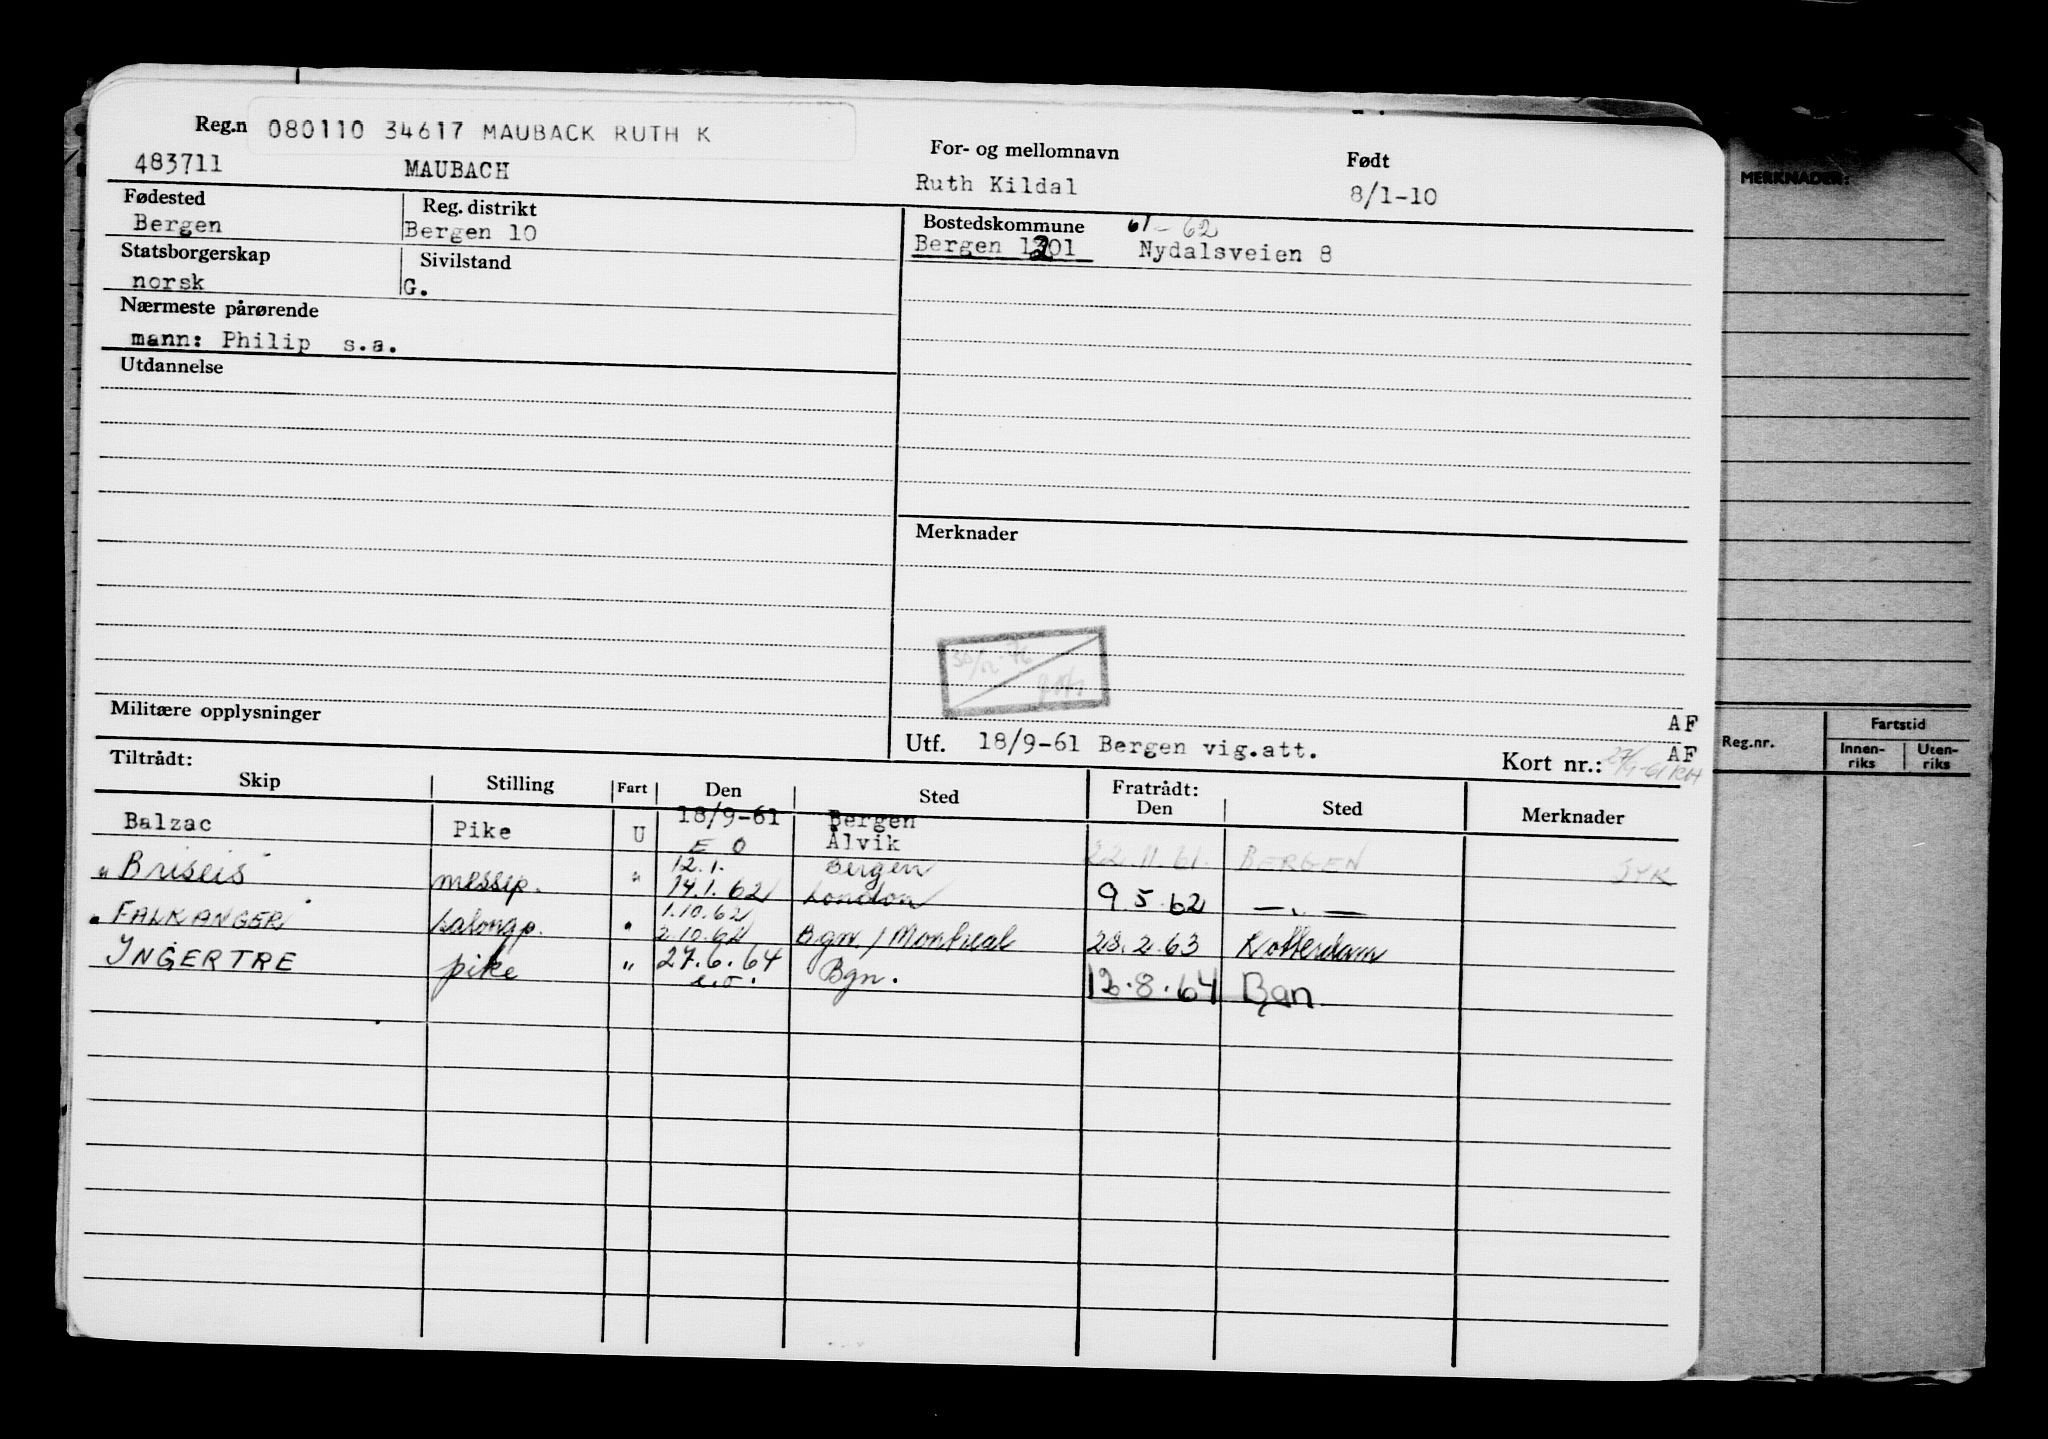 Reg.n 080110 34617 MAUBACK RUTH K
483711 MAUBACH
For- og mellomnavn Født
Ruth Kildal 8/1-10
Fødested Reg. distrikt
Bergen Bergen 10
Bostedskommune 61-62
Bergen 1201 Nydalsveien 8
Statsborgerskap Sivilstand
norsk G.
Nærmeste pårørende
mann: Philip s.a.
Utdannelse
Merknader
Militære opplysninger
AF
Utf. 18/9-61 Bergen vig.att. AF
Kort nr.:
Tiltrådt: Fratrådt:
Skip Stilling Fart Den Sted Den Sted Merknader
Balzac Pike U 18/9-61 Bergen
E O Ålvik 22.11.61. BERGEN SYK
" Briseis messp. " 12.1. Bergen
14.1.62 London 9.5.62 — " —
" FALKANGER salongp. " 1.10.62
2.10.62 Bgn. / Montreal 28.2.63 Rotterdam
INGERTRE pike " 27.6.64 Bgn. 12.8.64 Bgn.
e.o.
MERKNADER:
Reg.nr. Fartstid
Innen-riks Uten-riks